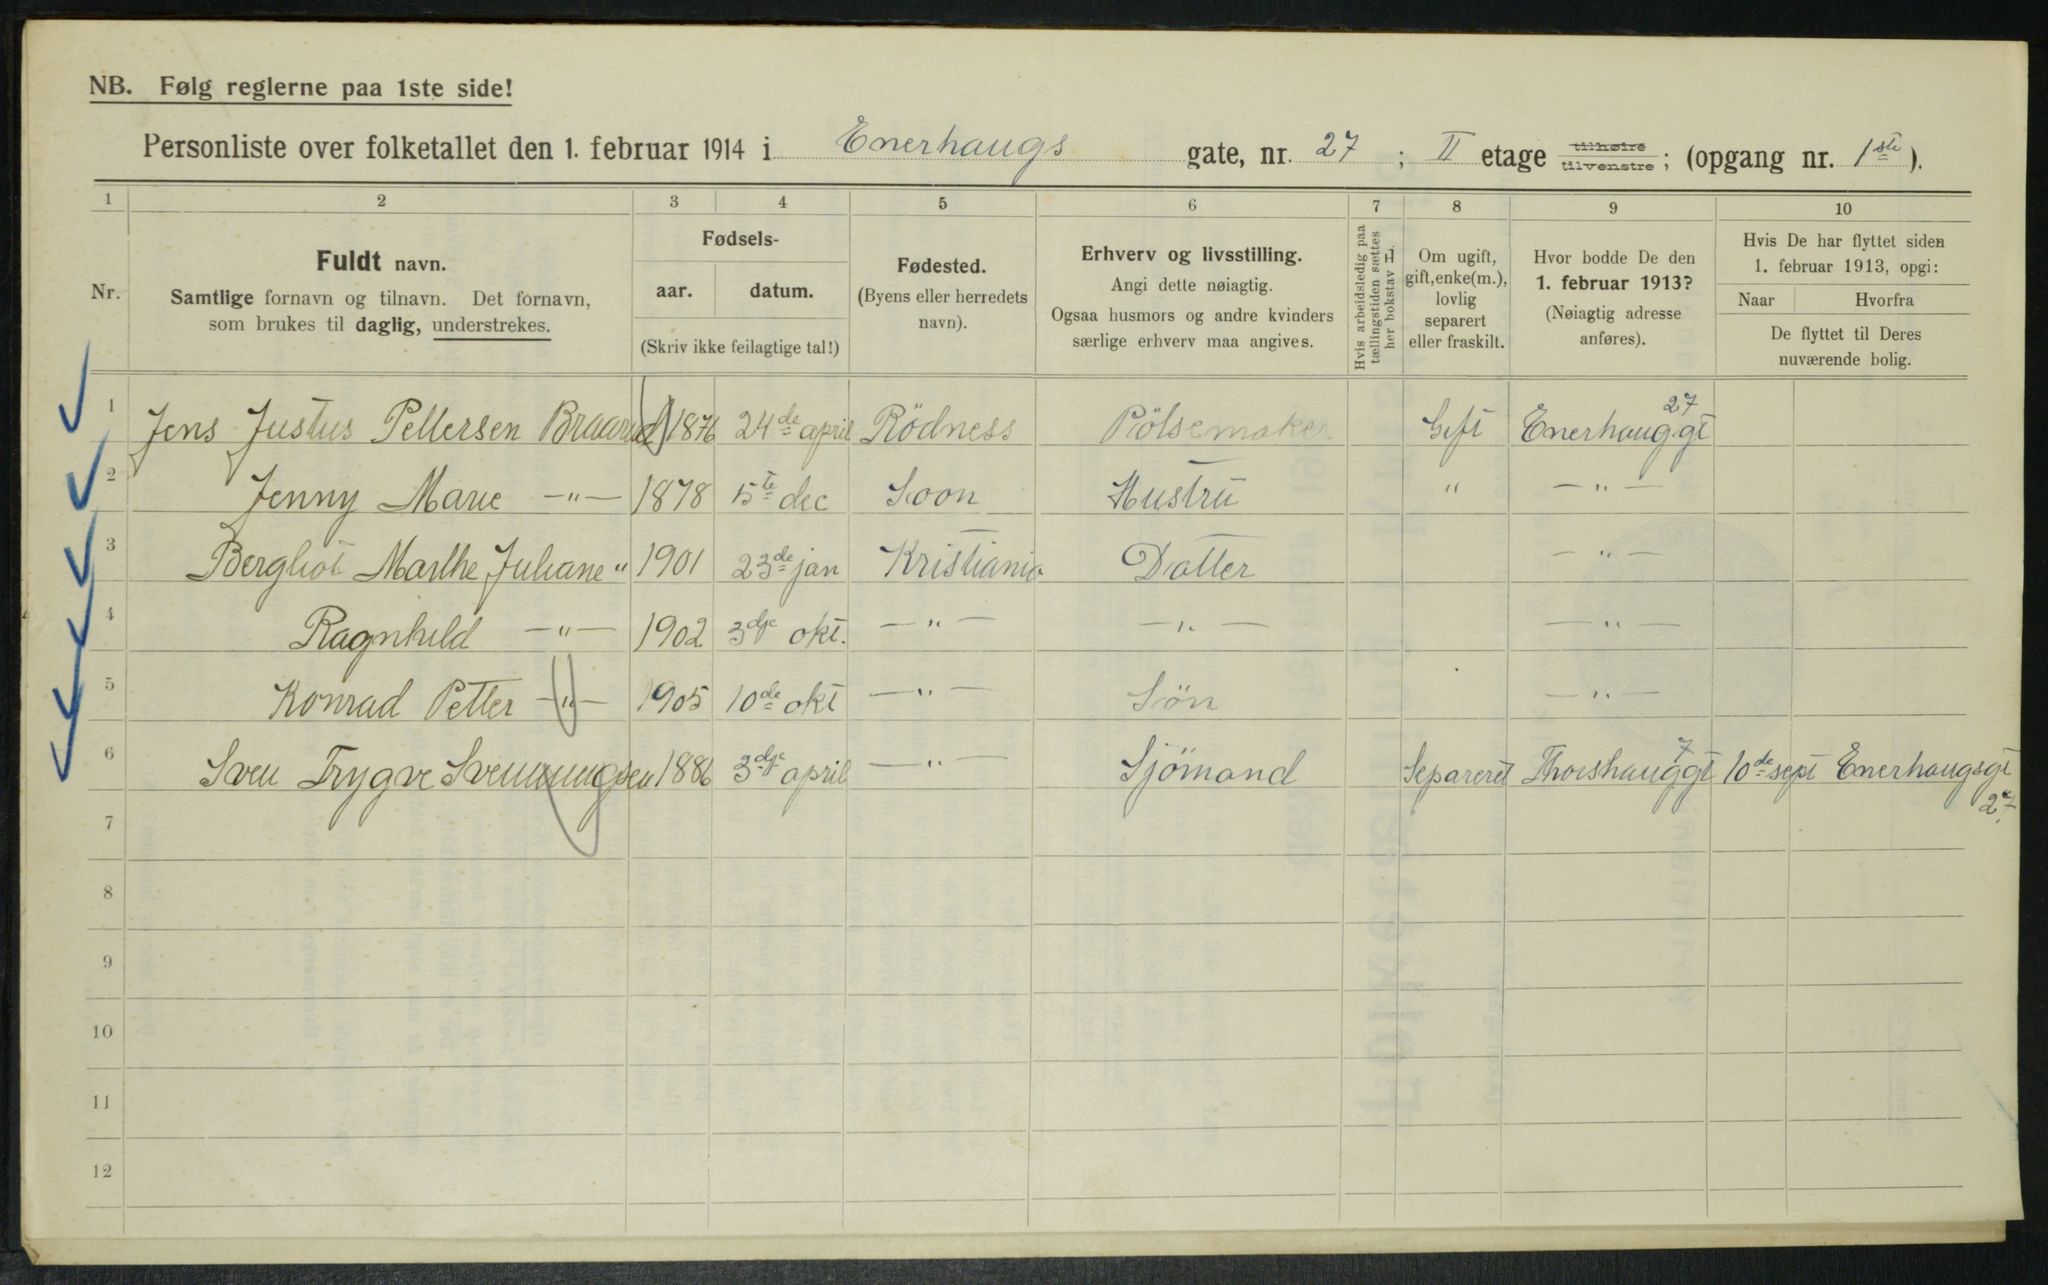 NB. Følg reglerne paa 1ste side!
Personliste over folketallet den 1. februar 1914 i Enerhaugs gate, nr. 27 ; II etage tilhøire tilvenstre ; (opgang nr. 1ste ).
1 2 3 4 5 6 7 8 9 10
Nr.
Fuldt navn.
Samtlige fornavn og tilnavn. Det fornavn,
som brukes til daglig, understrekes.
Fødsels-
aar. datum.
(Skriv ikke feilagtige tal!)
Fødested.
(Byens eller herredets
navn).
Erhverv og livsstilling.
Angi dette nøiagtig.
Ogsaa husmors og andre kvinders
særlige erhverv maa angives.
Hvis arbeidsledig paa
tællingstiden sættes
her bokstav L.
Om ugift,
gift, enke(m.),
lovlig
separert
eller fraskilt.
Hvor bodde De den
1. februar 1913?
(Nøiagtig adresse
anføres).
Hvis De har flyttet siden
1. februar 1913, opgi:
Naar Hvorfra
De flyttet til Deres
nuværende bolig.
1 Jens Justus Pettersen Braarud 1876 24de april Rödness Pölsemaker Gift Enerhauggt 27
2 Jenny Marie —"— 1878 15te dec Soon Hustru " —"—
3 Bergliot Marthe Juliane " 1901 23de jan Kristiania Datter —"—
4 Ragnhild —"— 1902 3dje okt. —"— —"— —"—
5 Konrad Petter —"— 1905 10de okt —"— Sön —"—
6 Sven Trygve Svenningsen 1886 3dje april —"— Sjömand Separeret Thorshauggt 7 10de sept Enerhaugsgt
27
7
8
9
10
11
12